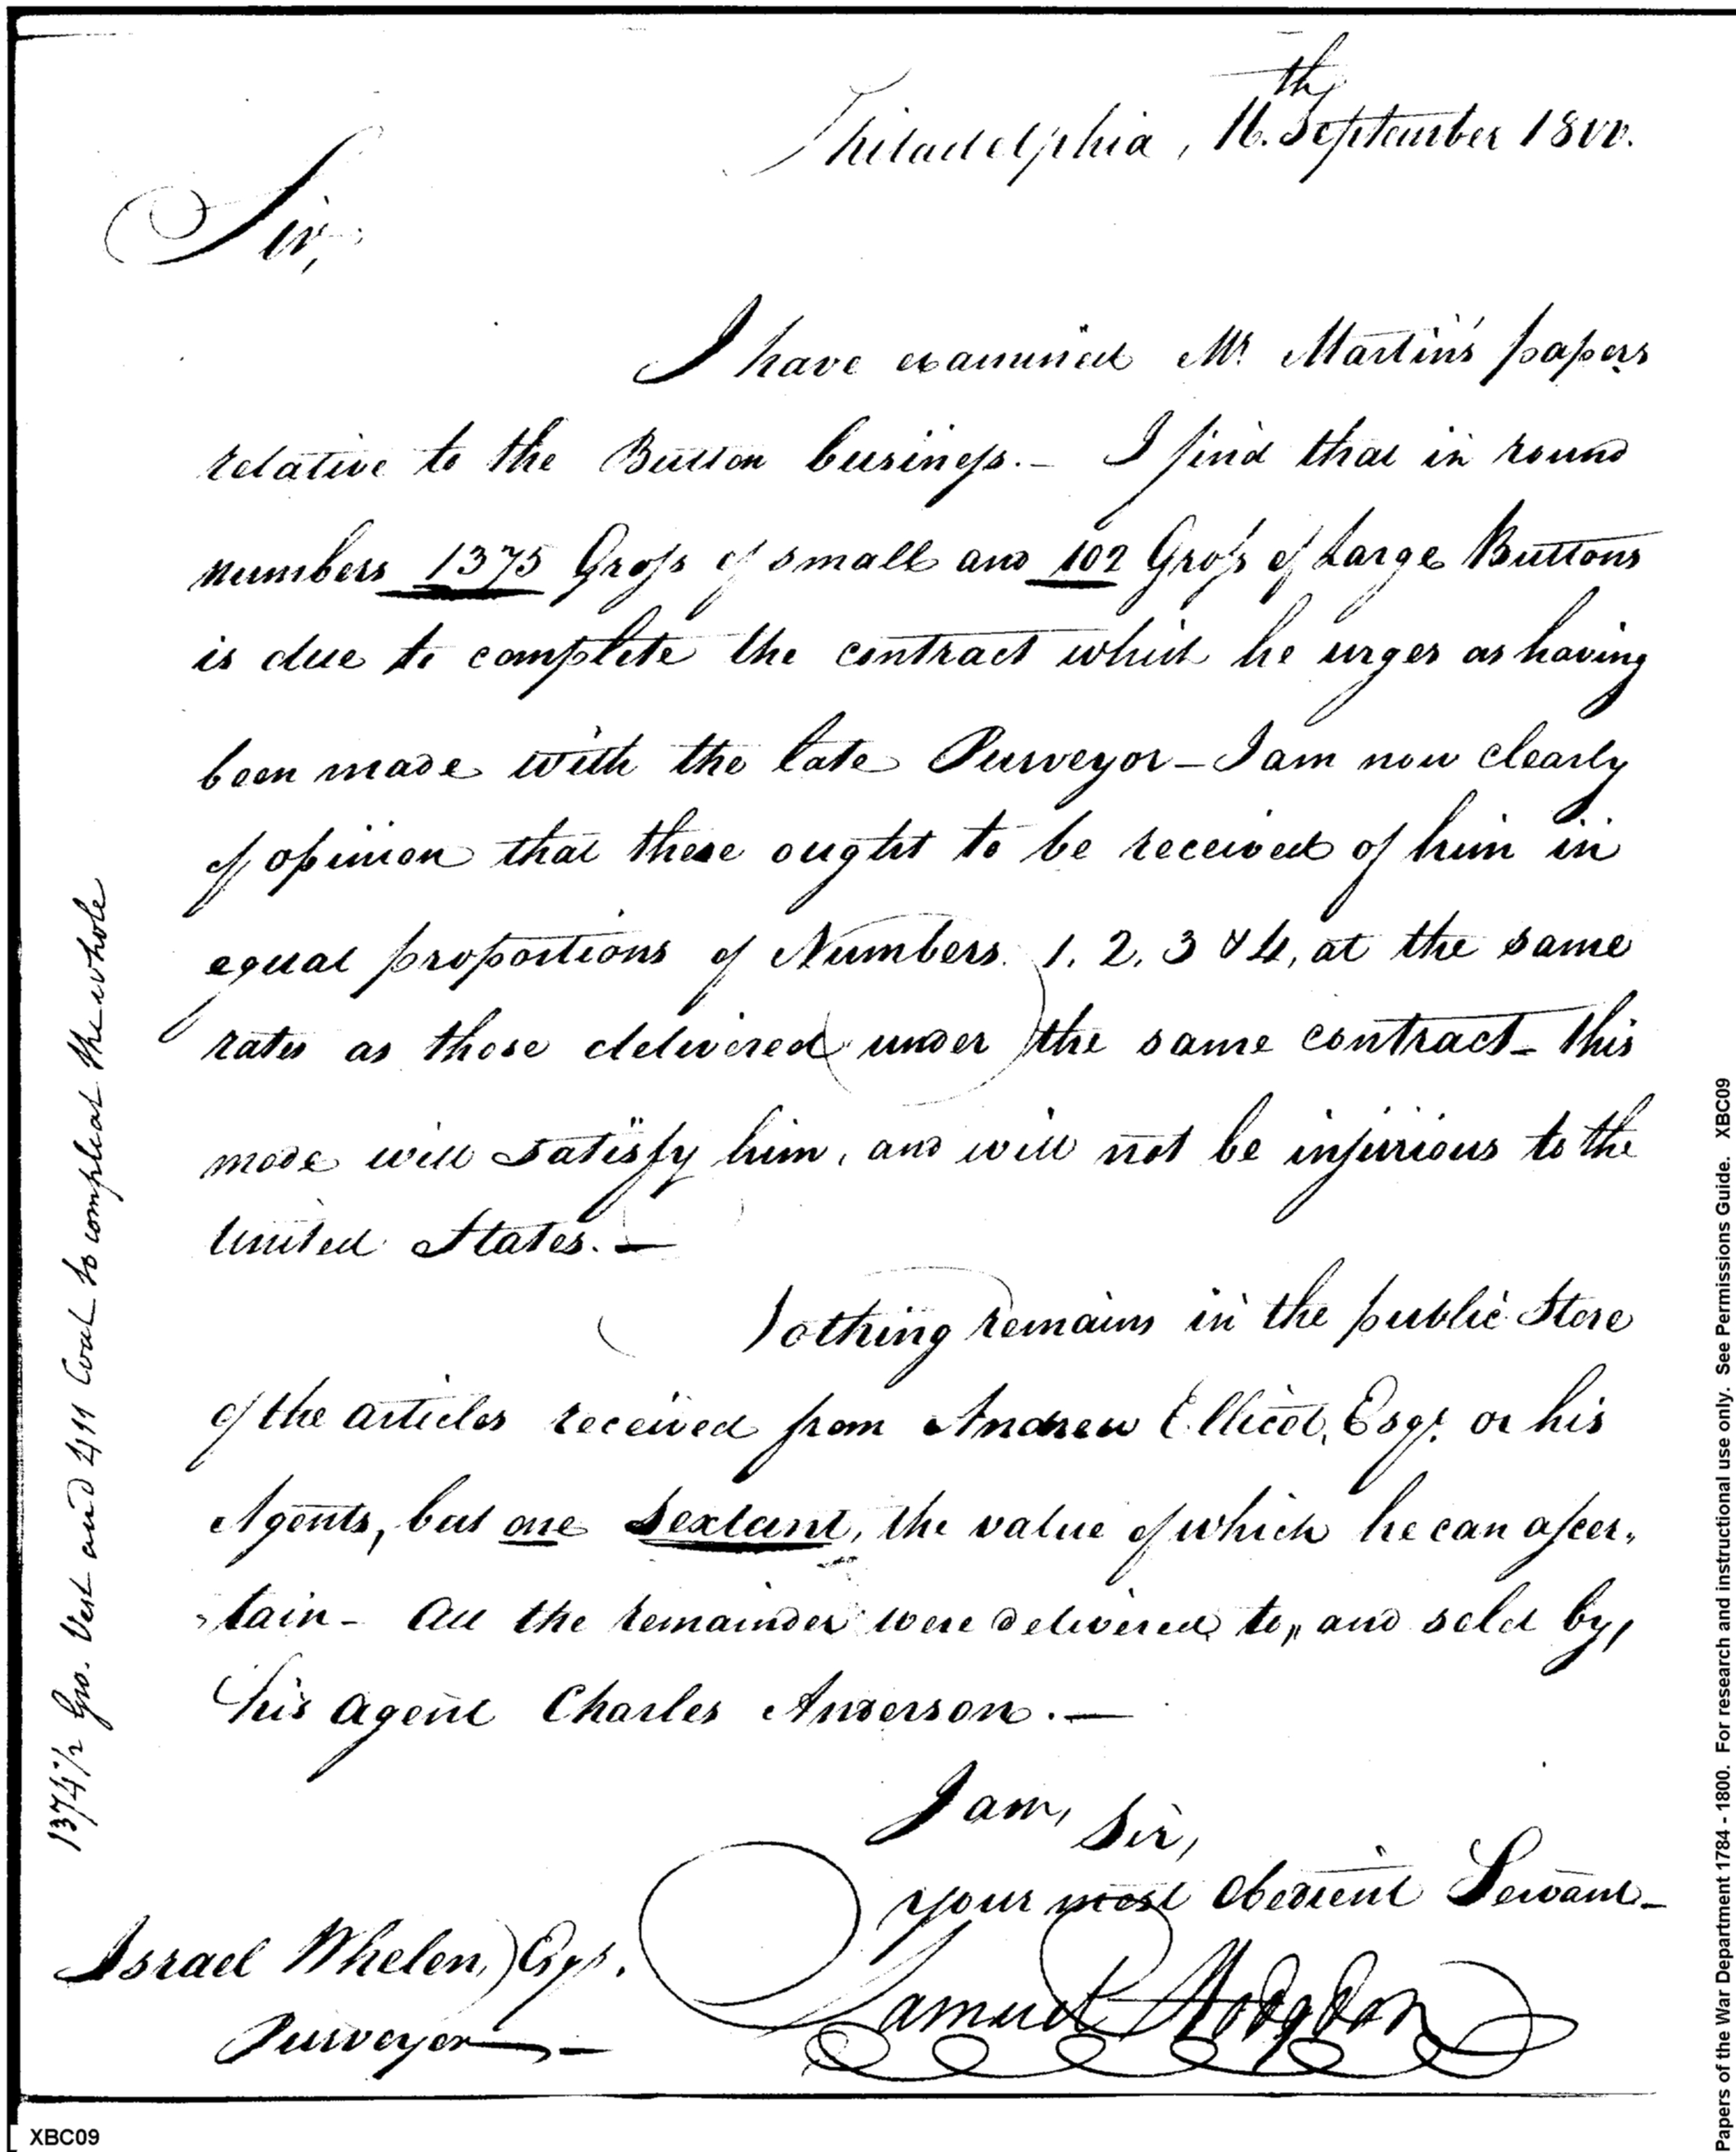 Philadelphia, 16.th September 1800.
Sir,
I have examined Mr. Martin's papers
relative to the Button business.— I find that in round
numbers 1375 Gross of small and 102 Gross of Large Buttons
is due to complete the contract which he urges as having
been made with the late Purveyor — I am now clearly
of opinion that these ought to be received of him in
equal proportions of Numbers 1, 2, 3 & 4, at the same
rates as those delivered under the same contract — this
mode will satisfy him, and will not be injurious to the
United States.—
Nothing remains in the public Store
of the articles received from Andrew Ellicot, Esqr. or his
Agents, but one Sextant, the value of which he can ascer,
,tain — All the remainder were delivered to, and sold by,
his agent Charles Anderson.—
I am,
Sir,
your most Obedient Servant—
Samuel Hodgdon
Israel Whelen, Esqr.
Purveyor—
1374 1/2 Gro. Vest and 411 Coat to compleat the whole
Papers of the War Department 1784 - 1800. For research and instructional use only. See Permissions Guide. XBC09
[ XBC09